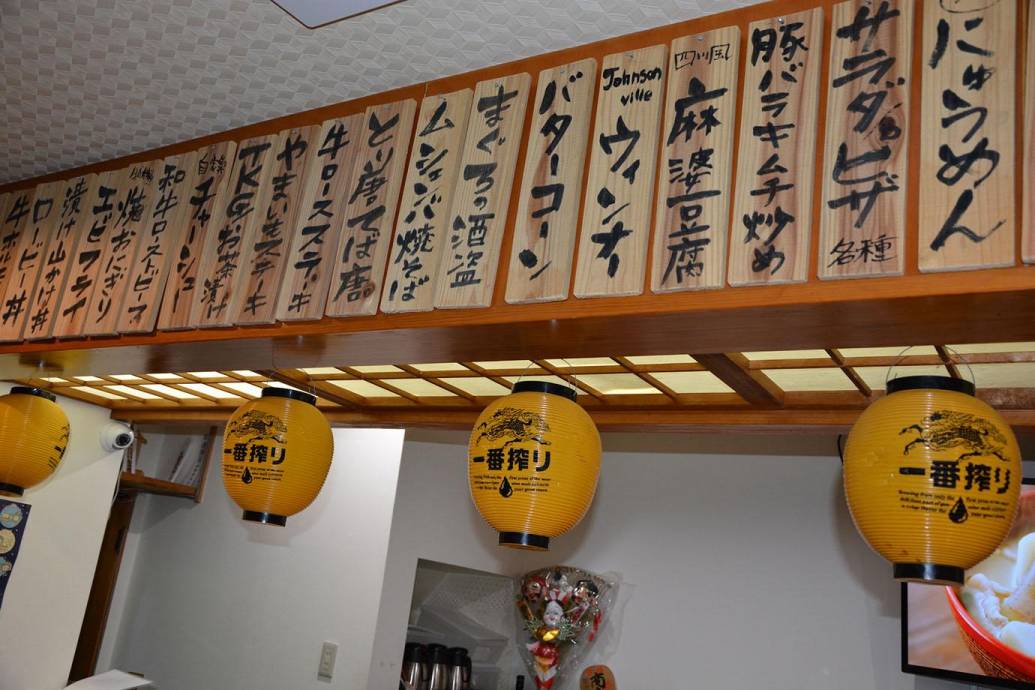 にゅうめん
サラダピザ
各種
豚バラキムチ炒め
四川風
麻婆豆腐
Johnson
ville
ウィンナー
バターコーン
まぐろの酒盗
ムシェンバ焼そば
とり唐てば唐
牛ロースステーキ
やまいもステーキ
TKGお茶漬け
自家
チャーシュー
和牛ローストビーフ
焼おにぎり
エビフライ
漬け山かけ丼
ロービー丼
一番搾り
一番搾り
一番搾り